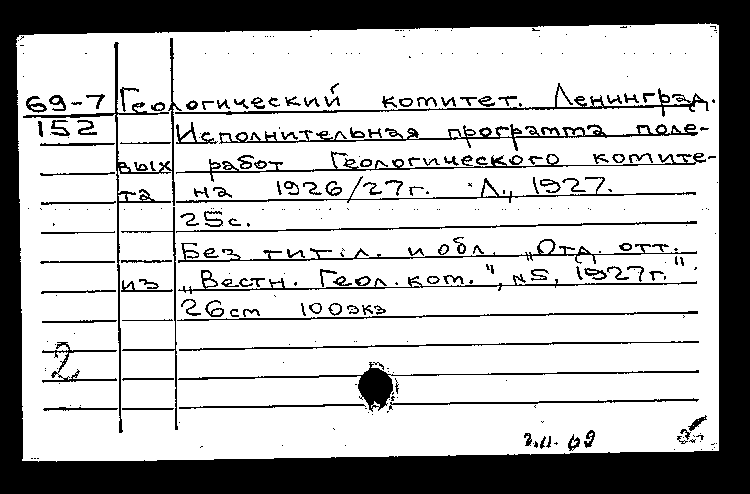 69-7 Геологический комитет. Ленинград.
152 Исполнительная программа поле-
вых работ Геологического комите-
та на 1926/27г. Л., 1927.
25с.
Без тит.л. и обл. „Отд. отт.
из „Вестн. Геол.ком.", №5, 1927г."
26cm 100экз
2
2.II.69